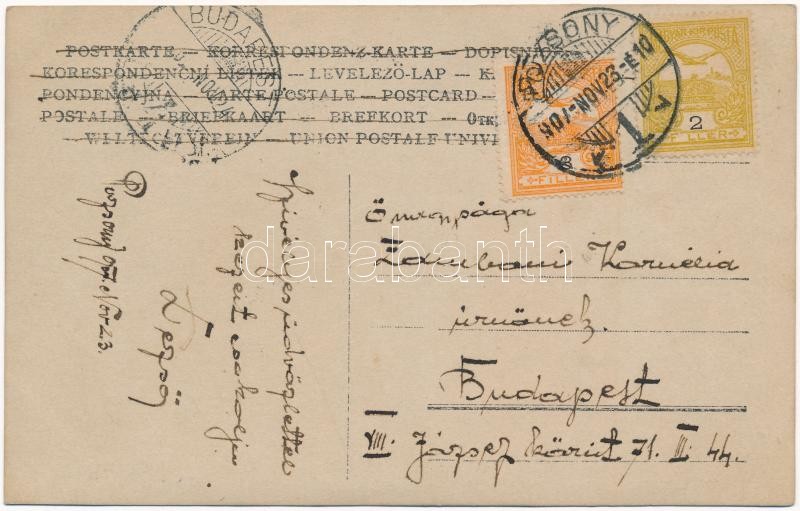 POSTKARTE — KORRESPONDENZ-KARTE — DOPIS
KORESPONDENČNÍ LISTEK — LEVELEZŐ-LAP — K
PONDENCYJNA — CARTE POSTALE — POSTCARD —
POSTALE — BRIEFKAART — BREFKORT —
WELTPOSTVEREIN — UNION POSTALE UNIV
BUDAPEST
POZSONY
907 NOV 23
1
MAGYAR KIR. POSTA
2
FILLÉR
FILLÉR
Pozsony 907. Nov. 23.
Szívélyes üdvözlettel
kezeit csókolja
Dezső
Zamboni Kornélia
úrnőnek.
Budapest
VIII. József körút 71. II. 44.
darabanth